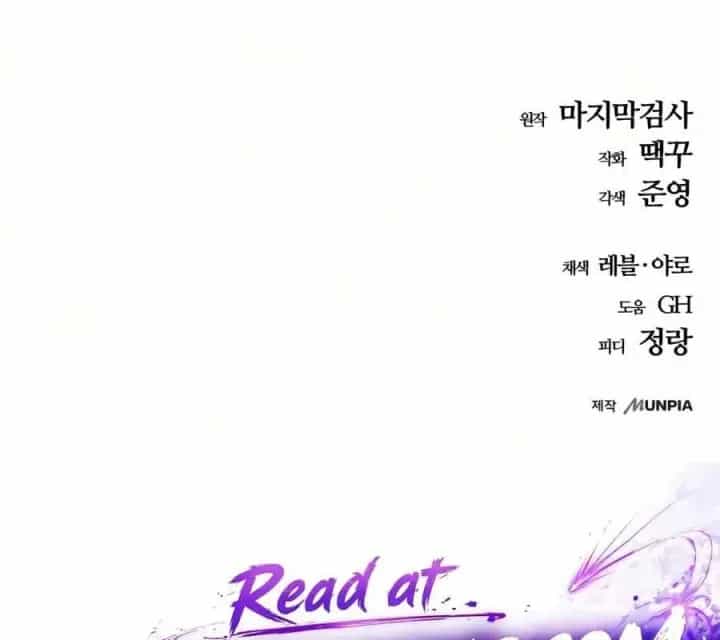 원작 마지막검사
작화 땍꾸
각색 준영
채색 레블·야로
도움 GH
피디 정랑
제작 MUNPIA
Read at